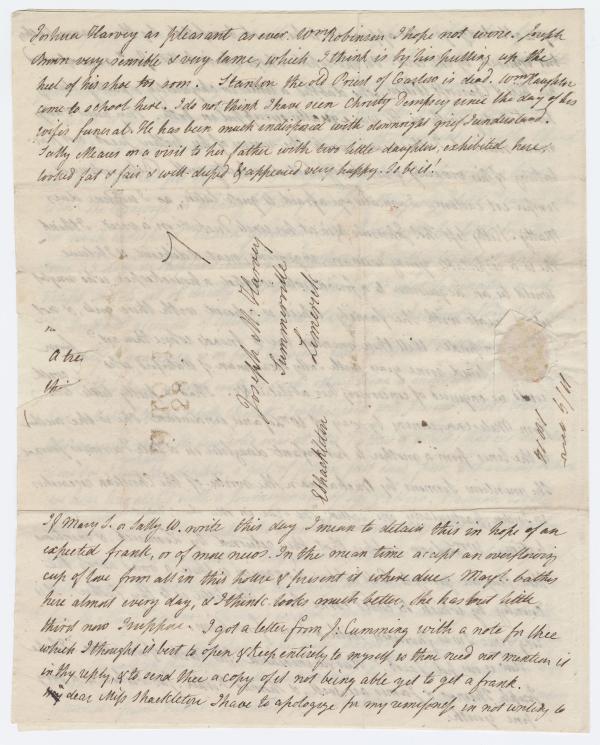 Joshua Harvey as pleasant as ever. Wm Robinson I hope not worse. Joseph
Brown very sensible & very lame, which I think is by his putting up the
heel of his shoe too soon. Stanton the old Priest of Castle is dead. Wm Daughter
come to school here. I do not think I have seen Christy Dempsey since the day of his
wife's funeral. He has been much indisposed with downright grief I understand.
Sally Meares on a visit to her father with two little daughters, exhibited here,
looked fat & fair & well-dressed & appeared very happy. So be it!
Joseph M. Harvey
Summerville
Limerick
EShackleton
A tre
If Mary S. or Sally W. write this day I mean to detain this in hope of an
expected frank, or of more news. In the mean time accept an overflowing
cup of love from all in this house & present it where due. Mary L. bathes
here almost every day, & I think looks much better, she has but little
thirst now I suppose. I got a letter from J. Cumming with a note for thee
which I thought is best to open & keep entirely to myself so thou need not mention it
in thy reply, & to send thee a copy of it not being able yet to get a frank.
dear Miss Shackleton I have to apologize for my remissness in not writing to